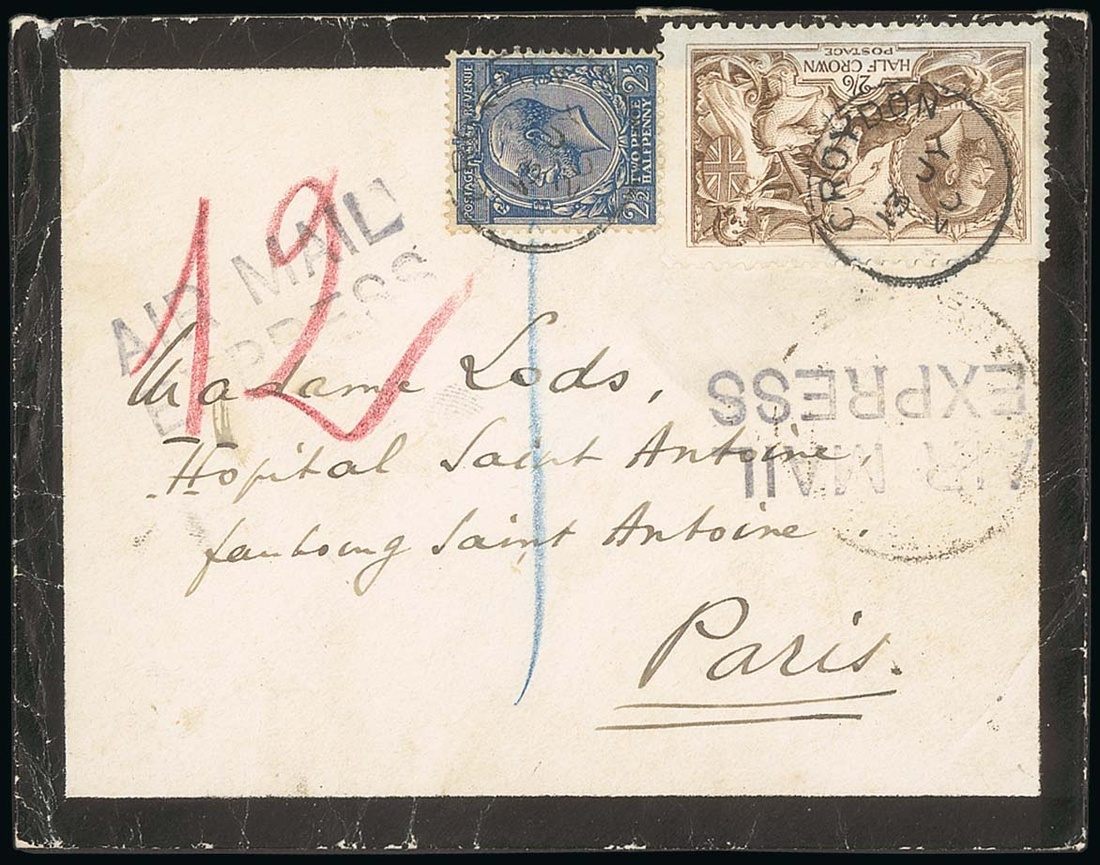 POSTAGE REVENUE
2½ TWO PENCE HALFPENNY 2½
2/6
HALF CROWN
POSTAGE
CROYDON
13
JY
20
12
AIR MAIL
EXPRESS
AIR MAIL
EXPRESS
Madame Lods,
Hopital Saint Antoine,
faubourg Saint Antoine.
Paris.